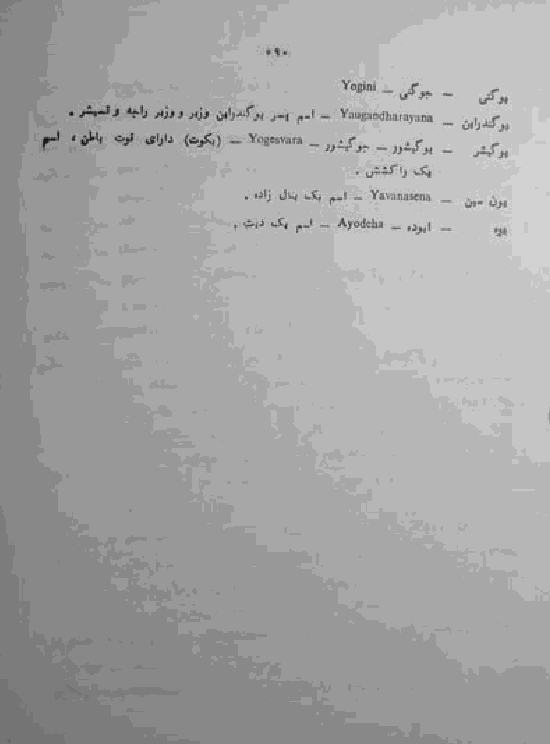 ۵۹۰
یوگنی — جوگنی — Yogini
یوگندراین — Yaugandharayana — اسم پسر یوگندراین وزیر و وزیر راجه و اتسیشر .
یوگیشر — یوگیشور — جوگیشور — Yogesvara — (بکوت) دارای قوت باطن ، اسم
یک راکشش .
یون سین — Yavanasena — اسم یک بقال زاده .
یوه — ایوده — Ayodeha — اسم یک دیت .